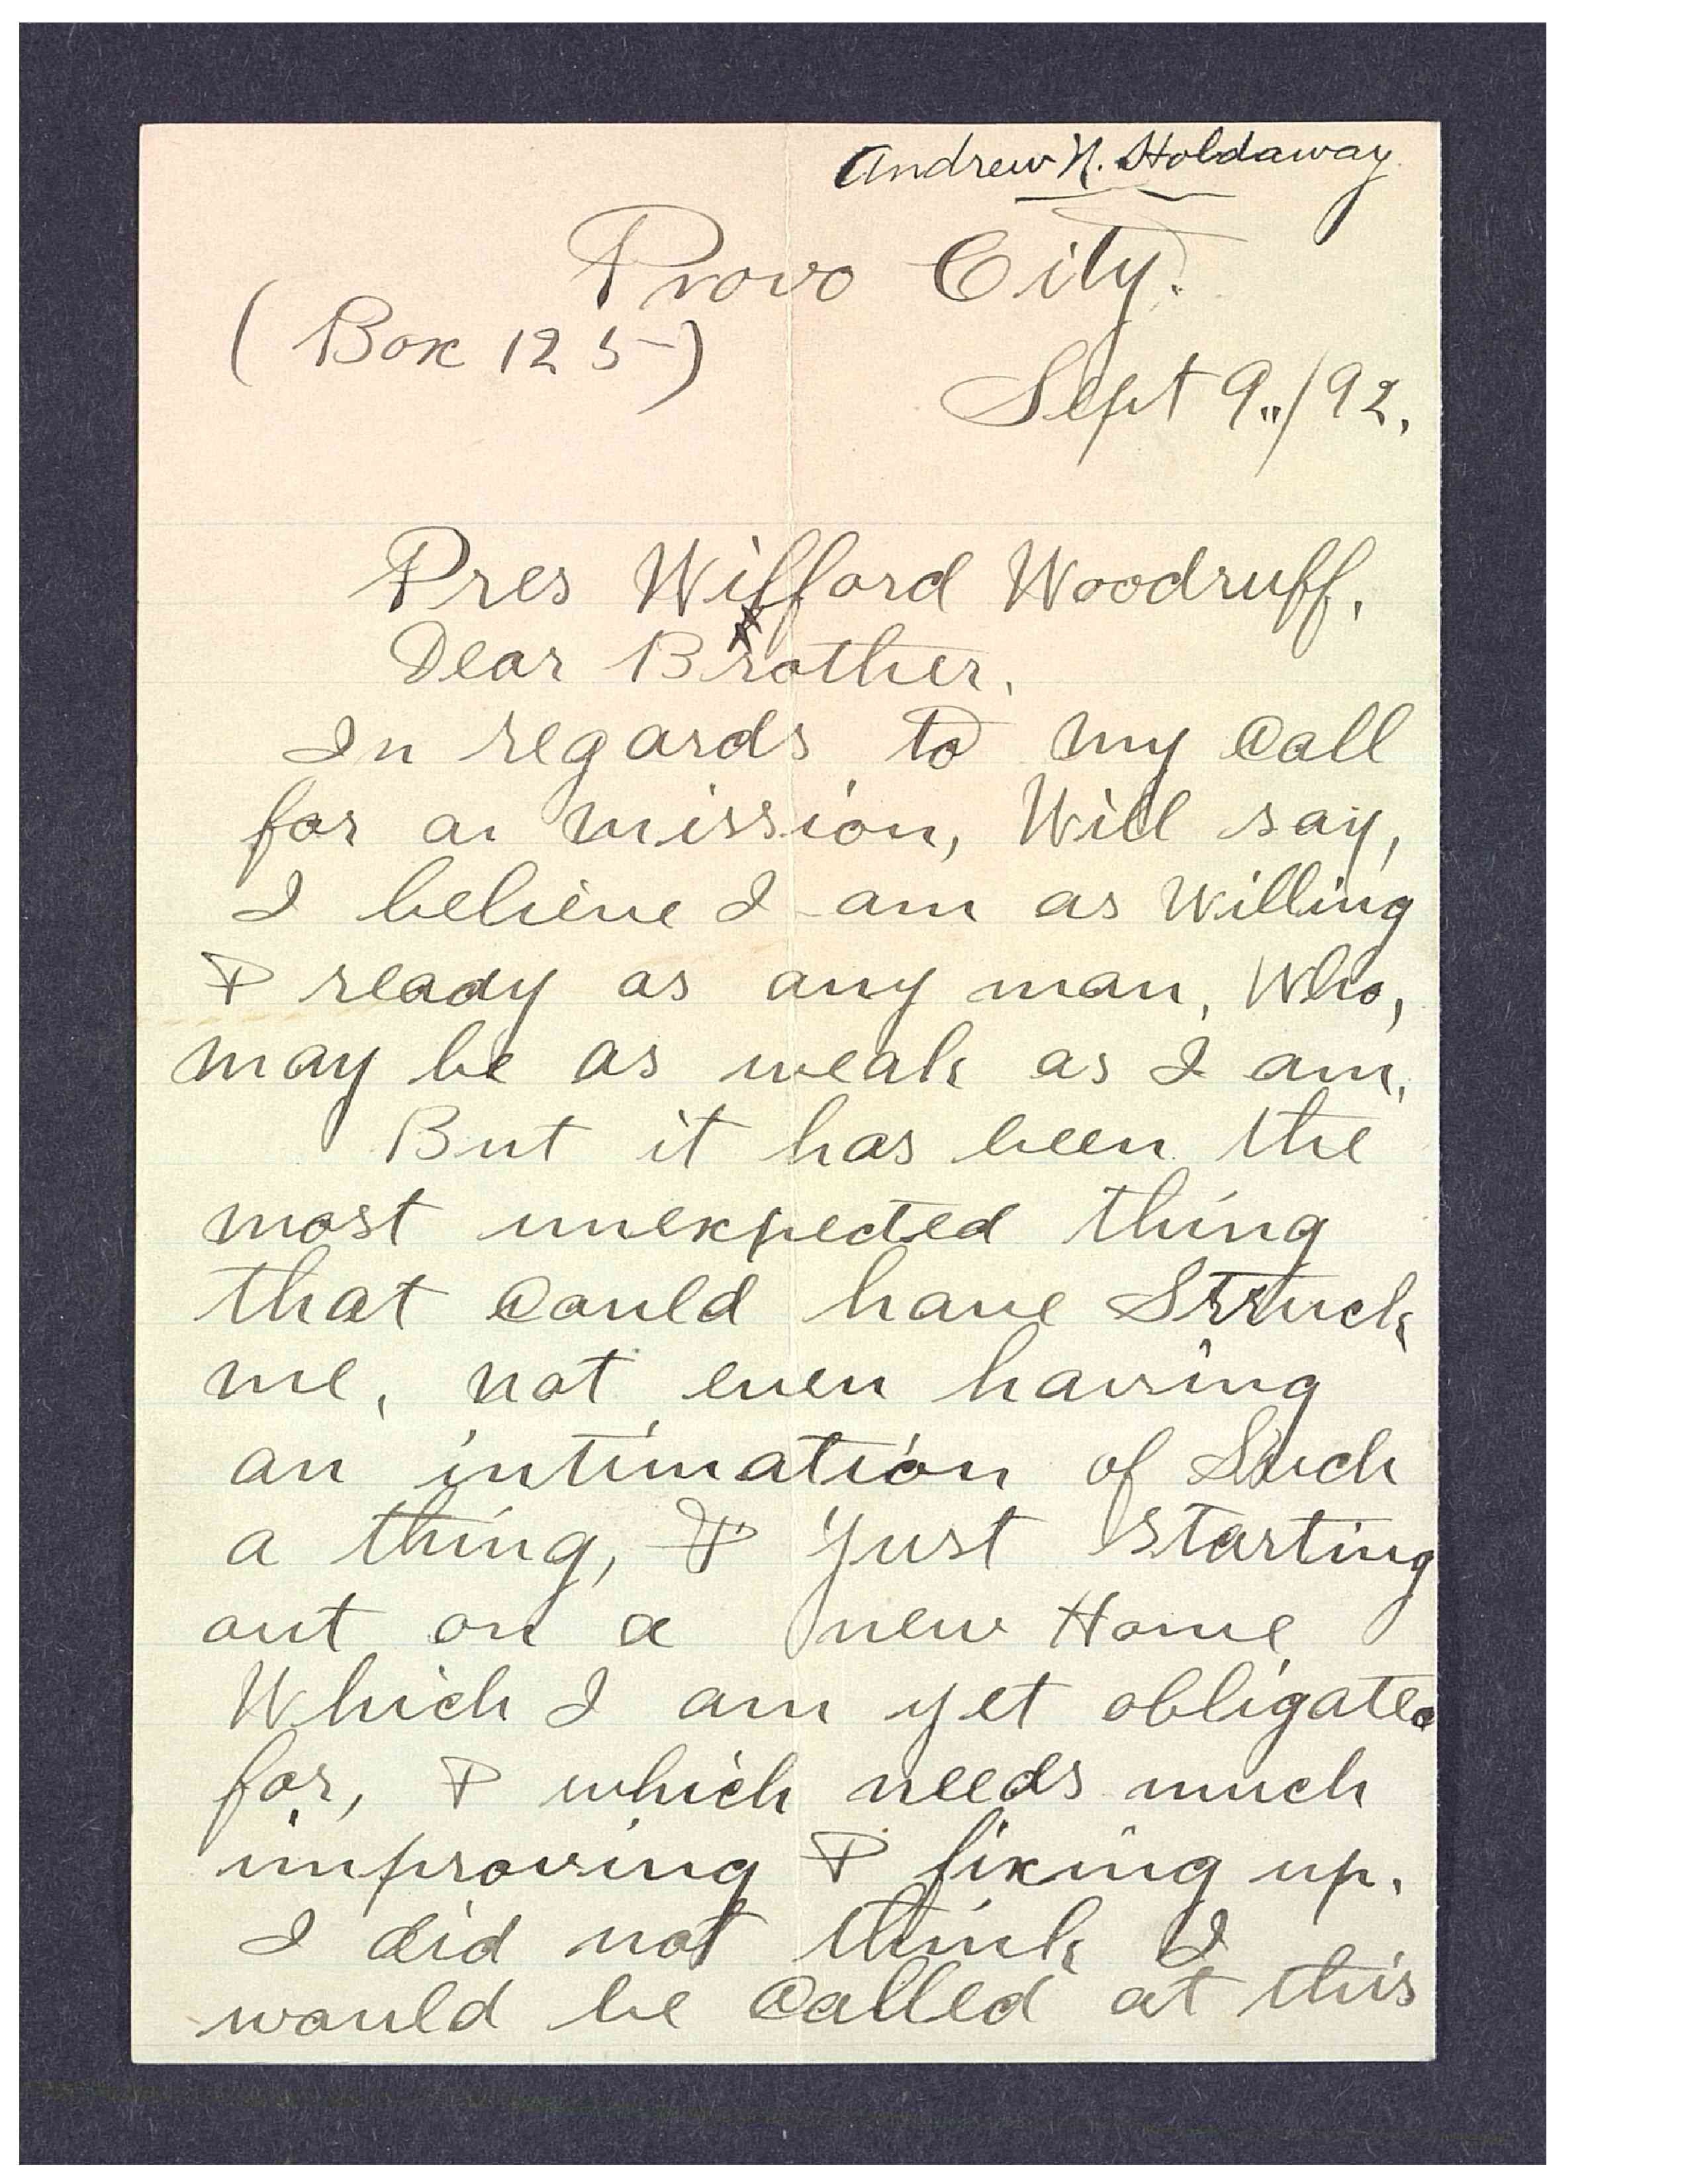 Andrew N. Holdaway
Provo City.
(Box 125)
Sept 9"/92.
Pres Wifford Woodruff,
Dear Brother.
In regards to my call
for a mission, Will say,
I believe I am as Willing
& ready as any man, Who,
may be as weak as I am.
But it has been the
most unexpected thing
that could have Struck
me, not even having
an intimation of Such
a thing, & just starting
out on a new Home
Which I am yet obligated
for, & which needs much
improving & fixing up.
I did not think I
would be called at this